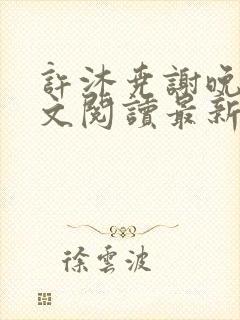 許沐堯謝晚
文閱讀最新
徐雲波